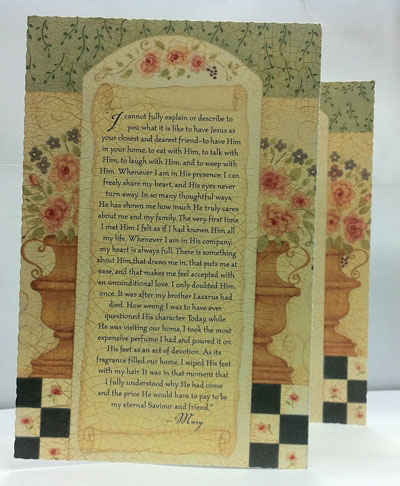 I cannot fully explain or describe to
you what it is like to have Jesus as
your closest and dearest friend–to have Him
in your home, to eat with Him, to talk with
Him, to laugh with Him, and to weep with
Him. Whenever I am in His presence, I can
freely share my heart, and His eyes never
turn away. In so many thoughtful ways,
He has shown me how much He truly cares
about me and my family. The very first time
I met Him I felt as if I had known Him all
my life. Whenever I am in His company,
my heart is always full. There is something
about Him that draws me in, that puts me at
ease, and that makes me feel accepted with
an unconditional love. I only doubted Him
once. It was after my brother Lazarus had
died. How wrong I was to have ever
questioned His character. Today, while
He was visiting our home, I took the most
expensive perfume I had and poured it on
His feet as an act of devotion. As its
fragrance filled our home, I wiped His feet
with my hair. It was in that moment that
I fully understood why He had come
and the price He would have to pay to be
my eternal Saviour and friend."
– Mary